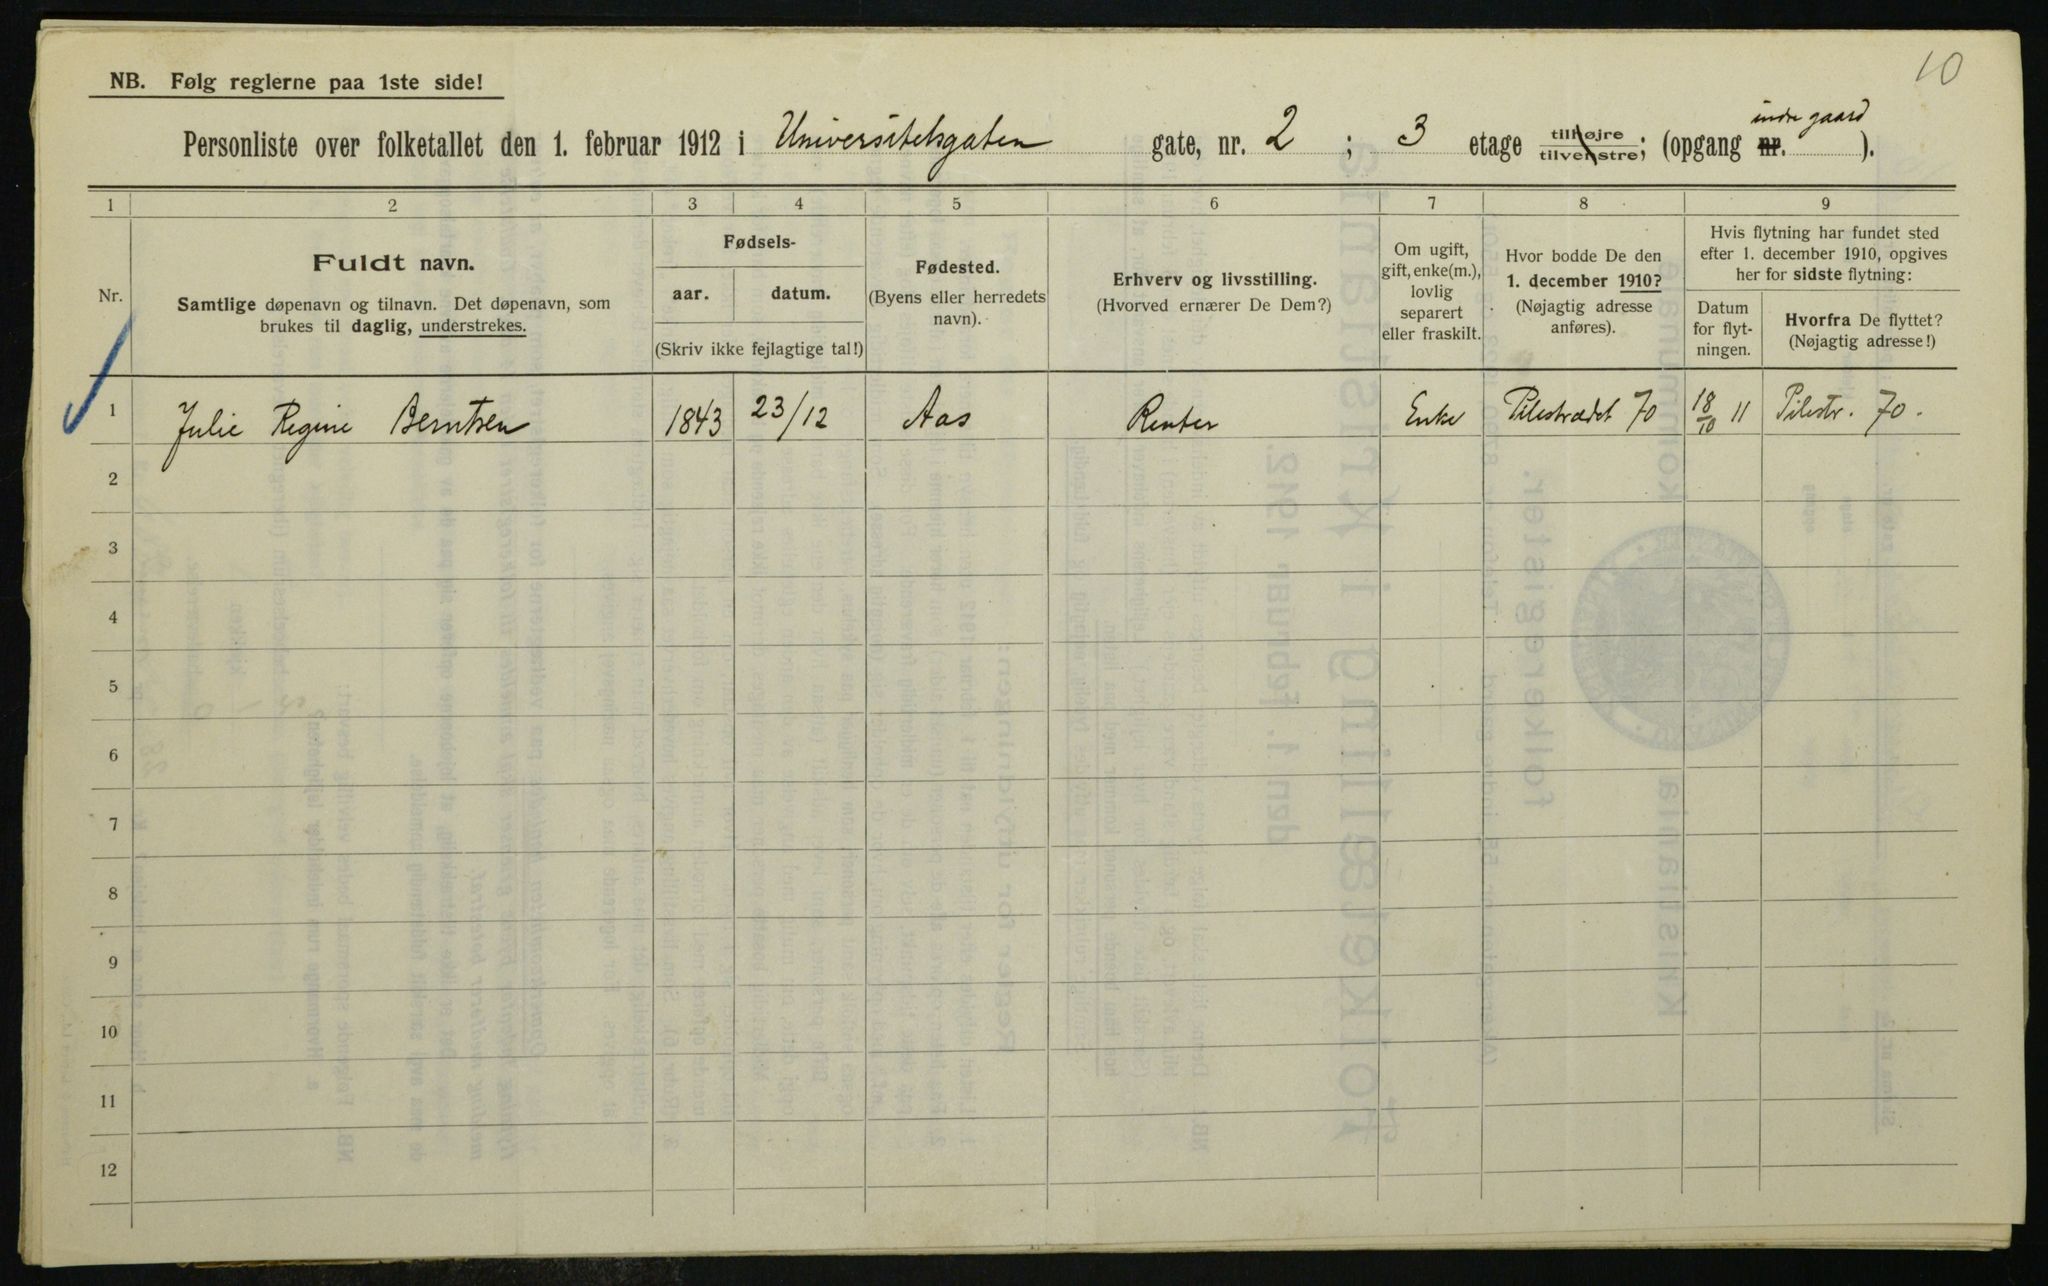 10
NB. Følg reglerne paa 1ste side!
indre gaard
Personliste over folketallet den 1. februar 1912 i Universitetsgaten gate, nr. 2 ; 3 etage tilhøjre tilvenstre; (opgang nr. ).
1 2 3 4 5 6 7 8 9
Nr.
Fuldt navn.
Samtlige døpenavn og tilnavn. Det døpenavn, som
brukes til daglig, understrekes.
Fødsels-
aar. datum.
(Skriv ikke fejlagtige tal!)
Fødested.
(Byens eller herredets
navn).
Erhverv og livsstilling.
(Hvorved ernærer De Dem?)
Om ugift,
gift, enke(m.),
lovlig
separert
eller fraskilt.
Hvor bodde De den
1. december 1910?
(Nøjagtig adresse
anføres).
Hvis flytning har fundet sted
efter 1. december 1910, opgives
her for sidste flytning:
Datum
for flyt-
ningen.
Hvorfra De flyttet?
(Nøjagtig adresse!)
1 Julie Regine Berntsen 1843 23/12 Aas Renter Enke Pilestrædet 70 18/10 11 Pilestr. 70.
2
3
4
5
6
7
8
9
10
11
12